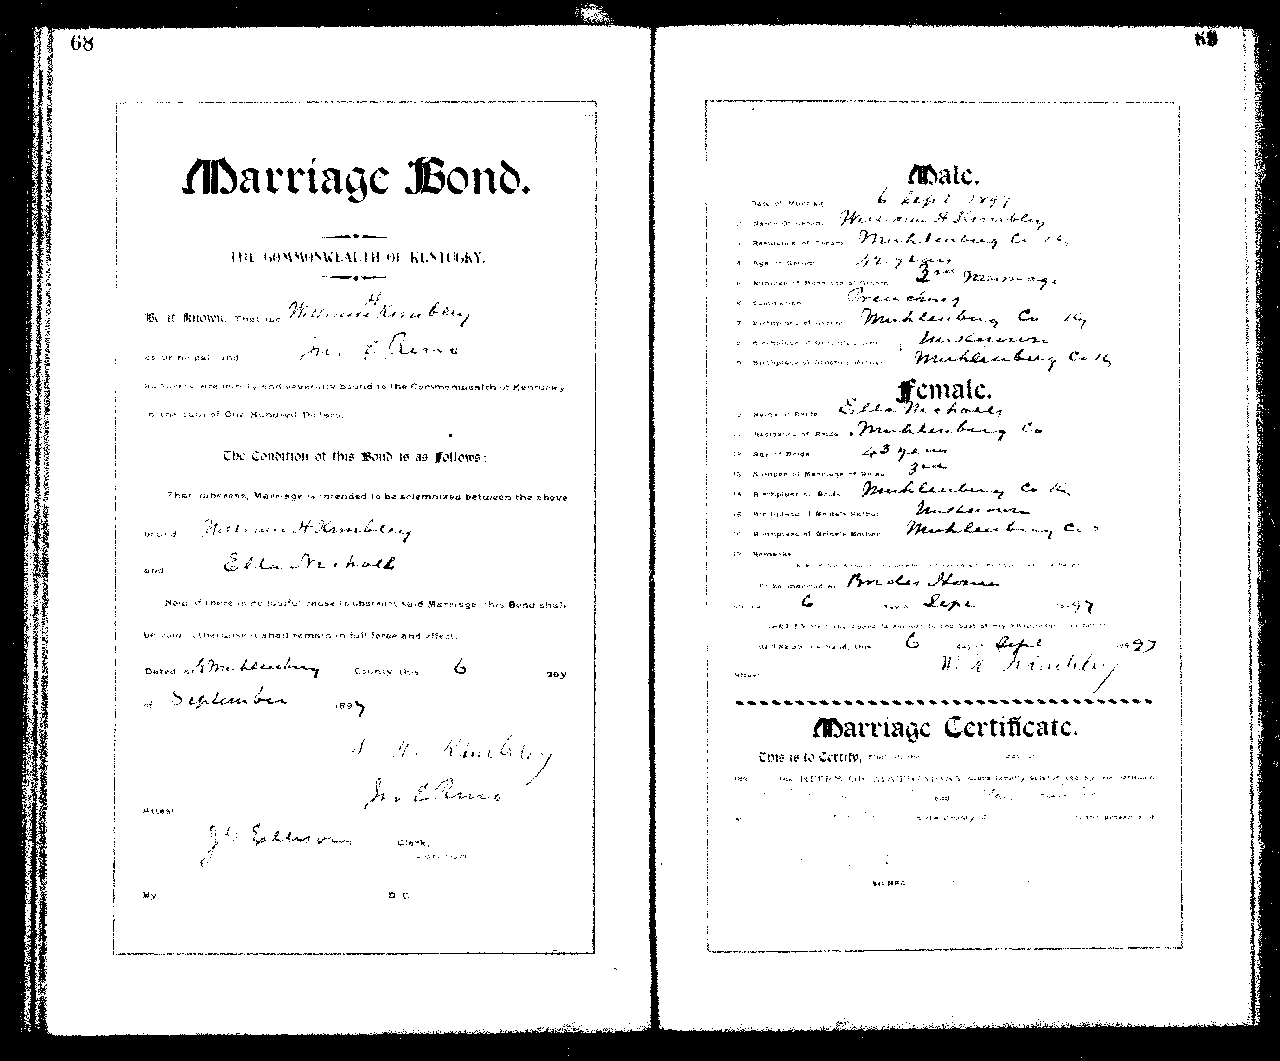 68
Marriage Bond.
THE COMMONWEALTH OF KENTUCKY.
Be it Known, That we William H Kimbley
as principal, and Jno. E Reno
as surety, are jointly and severally bound to the Commonwealth of Kentucky
in the sum of One Hundred Dollars.
The Condition of this Bond is as Follows:
That, whereas, Marriage is intended to be solemnized between the above
bound William H Kimbley
and Ella Nicholls
Now, if there is no lawful cause to obstruct said Marriage, this Bond shall
be void, otherwise it shall remain in full force and effect.
Dated at Muhlenburg County this 6 day
of September 1897
H. Kimbley
Jno. E Reno
Attest
Clerk.
By D. C.
Male.
Date of Marriage 6 Sept 1897
Name of Groom William H Kimbley
Residence of Groom Muhlenburg Co Ky
Age of Groom 42 years
Number of Marriage of Groom 3rd Marriage
Occupation Preaching
Birthplace of Groom Muhlenburg Co Ky
Birthplace of Groom's Father Unknown
Birthplace of Groom's Mother Muhlenburg Co Ky
Female.
Name of Bride Ella Nicholls
Residence of Bride Muhlenburg Co
Age of Bride 43 years
Number of Marriage of Bride 3rd
Birthplace of Bride Muhlenburg Co Ky
Birthplace of Bride's Father Unknown
Birthplace of Bride's Mother Muhlenburg Co
Remarks
To be married at Brides Home
6 day of Sept 1897
this 6 day of Sept 1897
W. H. Kimbley
Attest
Marriage Certificate.
This is to Certify, That on the day of
the RITES OF MATRIMONY were legally solemnized by me between
and
in the County of in the presence of
SIGNED